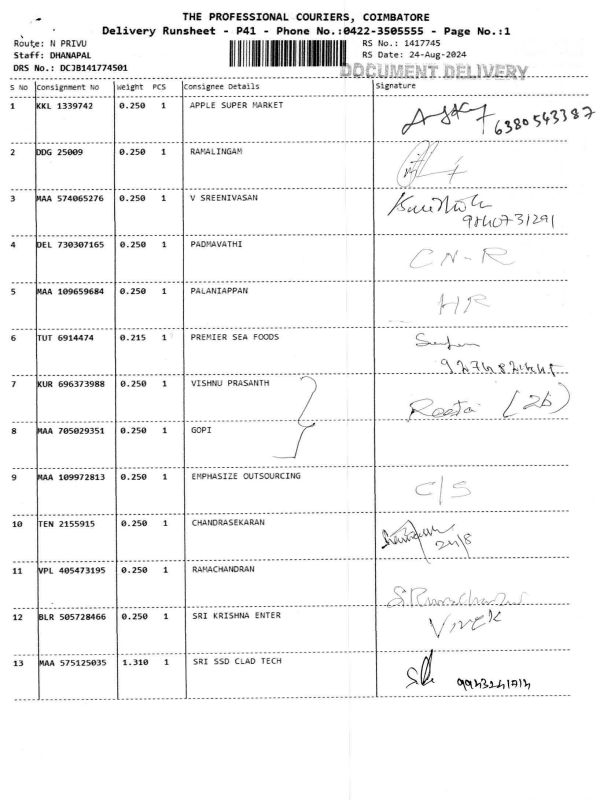 THE PROFESSIONAL COURIERS, COIMBATORE
Delivery Runsheet - P41 - Phone No.:0422-3505555 - Page No.:1
Route: N PRIVU RS No.: 1417745
Staff: DHANAPAL RS Date: 24-Aug-2024
DRS No.: DCJB141774501 DOCUMENT DELIVERY
S No Consignment No Weight PCS Consignee Details Signature
1 KKL 1339742 0.250 1 APPLE SUPER MARKET
6380543387
2 DDG 25009 0.250 1 RAMALINGAM
3 MAA 574065276 0.250 1 V SREENIVASAN
9840731291
4 DEL 730307165 0.250 1 PADMAVATHI CN-R
5 MAA 109659684 0.250 1 PALANIAPPAN HR
6 TUT 6914474 0.215 1 PREMIER SEA FOODS
7 KUR 696373988 0.250 1 VISHNU PRASANTH
Reeta (2b)
8 MAA 705029351 0.250 1 GOPI
9 MAA 109972813 0.250 1 EMPHASIZE OUTSOURCING C/S
10 TEN 2155915 0.250 1 CHANDRASEKARAN
24/8
11 VPL 405473195 0.250 1 RAMACHANDRAN
12 BLR 505728466 0.250 1 SRI KRISHNA ENTER VIVEK
13 MAA 575125035 1.310 1 SRI SSD CLAD TECH